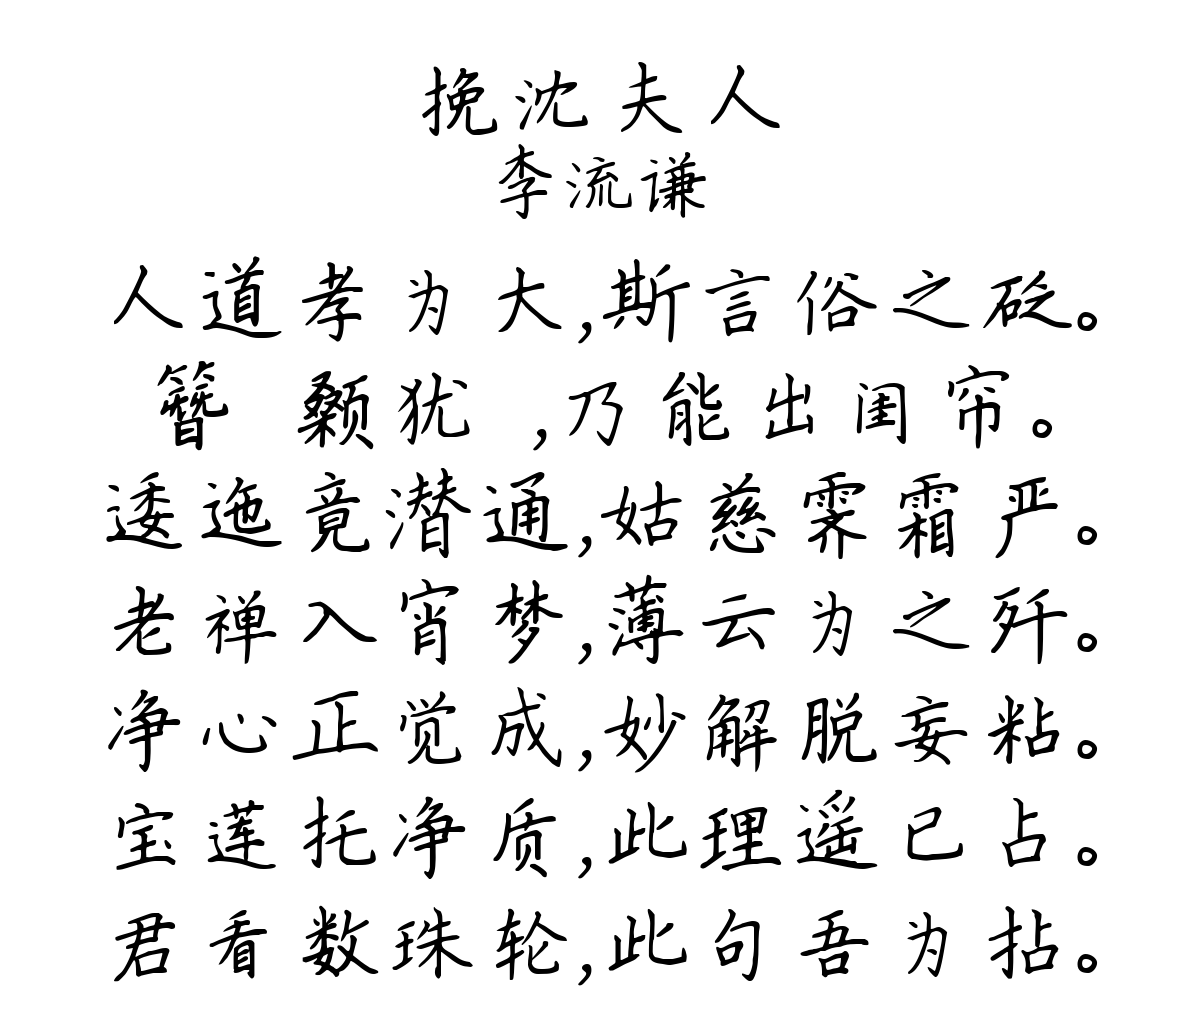 挽沈夫人
李流谦
人道孝为大,斯言俗之砭。
簪 颡犹 ,乃能出闺帘。
逶迤竟潜通,姑慈霁霜严。
老禅入宵梦,薄云为之歼。
净心正觉成,妙解脱妄粘。
宝莲托净质,此理遥已占。
君看数珠轮,此句吾为拈。